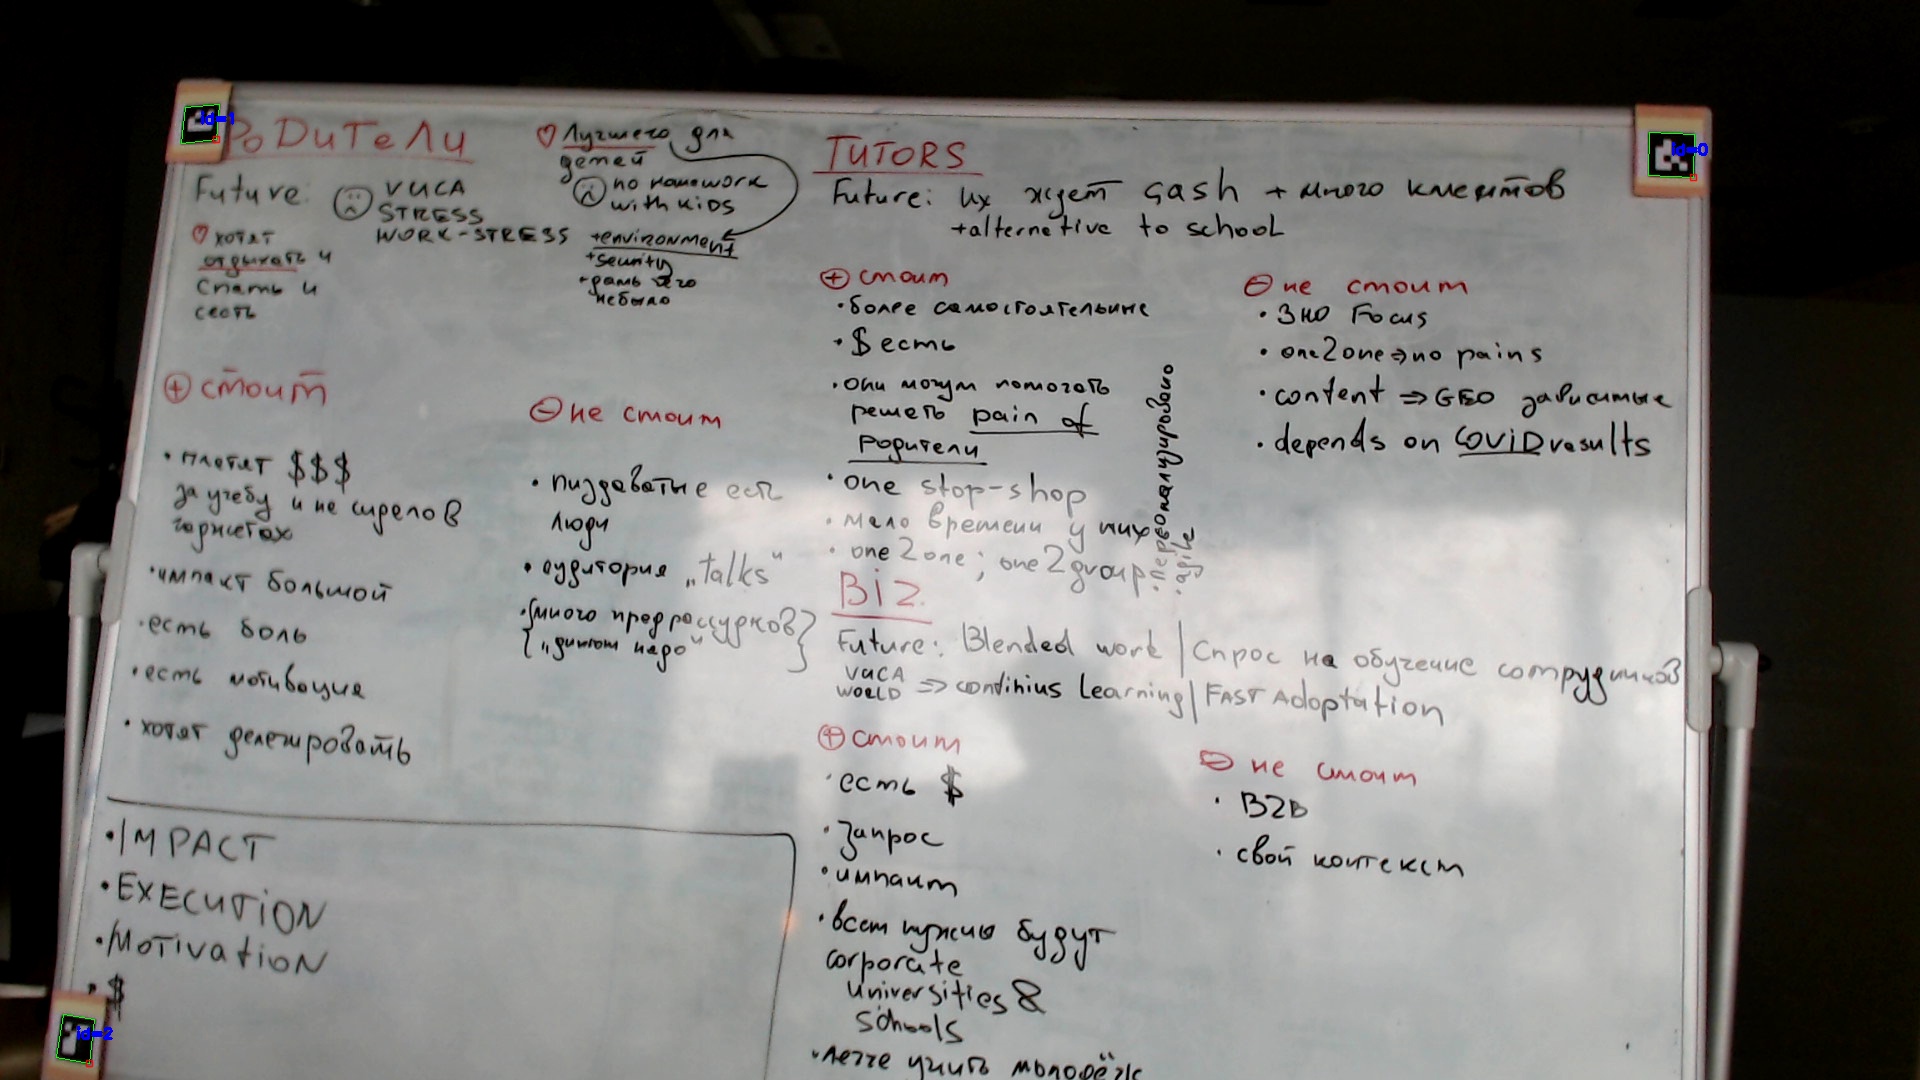 РОДИТЕЛИ
Future:
VUCA
STRESS
WORK-STRESS
хотят
отдыхать и
спать и
сесть
Лучшего для
детей
no homework
with kids
+environment
+security
+дать чего
небыло
+ стоит
• платят $$$
за учебу и не сирело в
гаржетах
• импакт большой
• есть боль
• есть мотивация
• хотят делегировать
- не стоит
• пиздаватые есть
люди
• аудитория „talks"
• {много предрассудков}
{„диплом надо"}
• IMPACT
• EXECUTION
• MOTIVATION
• $
TUTORS
Future: их ждет cash + много клиентов
+alternative to school
+ стоит
• более самостоятельные
• $ есть
• они могут помогать
решать pain of
родители
• one stop-shop
• мало времени у них
• one2one; one2group
• agile
- не стоит
• ЗНО Focus
• one2one => no pains
• content => GEO зависимые
• depends on COVID results
Biz.
Future: Blended work | Спрос на обучение сотрудников
VUCA
WORLD => continius Learning | FAST Adoptation
+ стоит
• есть $
• запрос
• импакт
• всем нужны будут
corporate
universities &
schools
• легче учить молодёж
- не стоит
• B2B
• свой контекст